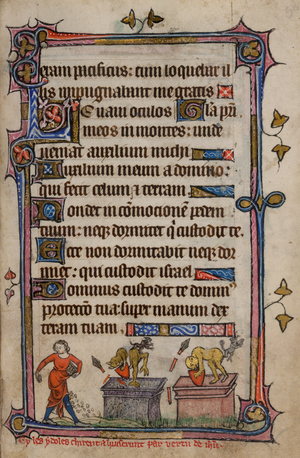 eram pacificus: cum loquebar il
lis impugnabant me gratis
Levavi oculos Gla pri
meos in montes: unde
veniat auxilium michi
Auxilium meum a domino:
qui fecit celum & terram
Non det in cōmocionem pedem
tuum: neqz dormitet q̇ custodit te.
Ecce non dormitabit neqz dor
miet: qui custodit israel
Dominus custodit te domin9
protectio tua: super manum dex
teram tuam.
les ydoles chirent a huiscrunt par vertu de ihu